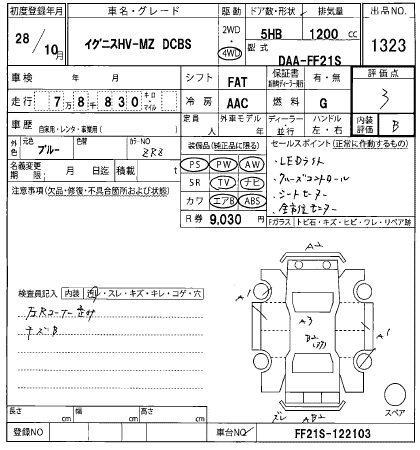 初度登録年月 車名・グレード 駆動 ドア数・形状 排気量 出品NO.
28/10月 イグニスHV-MZ DCBS 2WD・4WD 5HB 1200cc 1323
型式 DAA-FF21S
車検 年 月 シフト FAT 保証書 有・無 評価点
走行 7万8千830 キロ・マイル 冷房 AAC 燃料 G 3
車歴 自家用・レンタ・事業用( ) 定員 人 外車モデル 年 ディーラー・並行 ハンドル 左・右 内装評価 B
外色 元色 ブルー 色替 カラーNO ZR8
装備品(純正品に限る) セールスポイント(正常に作動するもの)
名義変更期限 月 日迄 積載 t
PS PW AW
・LEDライト
SR TV ナビ
・クルーズコントロール
カワ エアB ABS
・シートヒーター
・全方位モニター
注意事項(欠品・修復・不具合箇所および状態)
R券 9,030円
Fガラス トビ石・キズ・ヒビ・ワレ・リペア跡
検査員記入 内装 汚レ・スレ・キズ・キレ・コゲ・穴
キズB
A2
A1
A3
B2
A1
スペア
長さ cm 幅 cm 高さ cm
登録NO
車台NO FF21S-122103